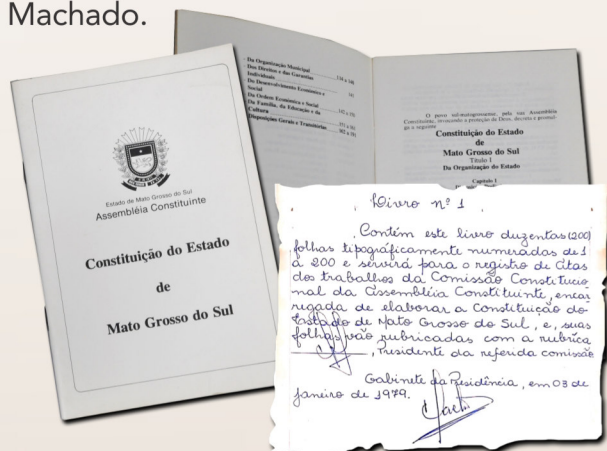 Machado.
Estado de Mato Grosso do Sul
Assembléia Constituinte
Constituição do Estado
de
Mato Grosso do Sul
Da Organização Municipal
Dos Direitos e das Garantias
Individuais
Do Desenvolvimento Econômico e
Social
Da Ordem Econômica e Social
Da Família, da Educação e da
Cultura
Disposições Gerais e Transitórias
O povo sul-matogrossense, pela sua Assembléia
Constituinte, invocando a proteção de Deus, decreta e promul-
ga a seguinte
Constituição do Estado
de
Mato Grosso do Sul
Título I
Da Organização do Estado
Capítulo I
Livro nº 1
Contém este livro duzentas (200)
folhas tipográficamente numeradas de 1
a 200 e servirá para o registro de Atas
dos trabalhos da Comissão Constitucio
nal da Assembléia Constituinte, encar
regada de elaborar a Constituição do
Estado de Mato Grosso do Sul, e, suas
folhas vão rubricadas com a rubrica
, Presidente da referida comissão
Gabinete da Presidência, em 03 de
janeiro de 1979.